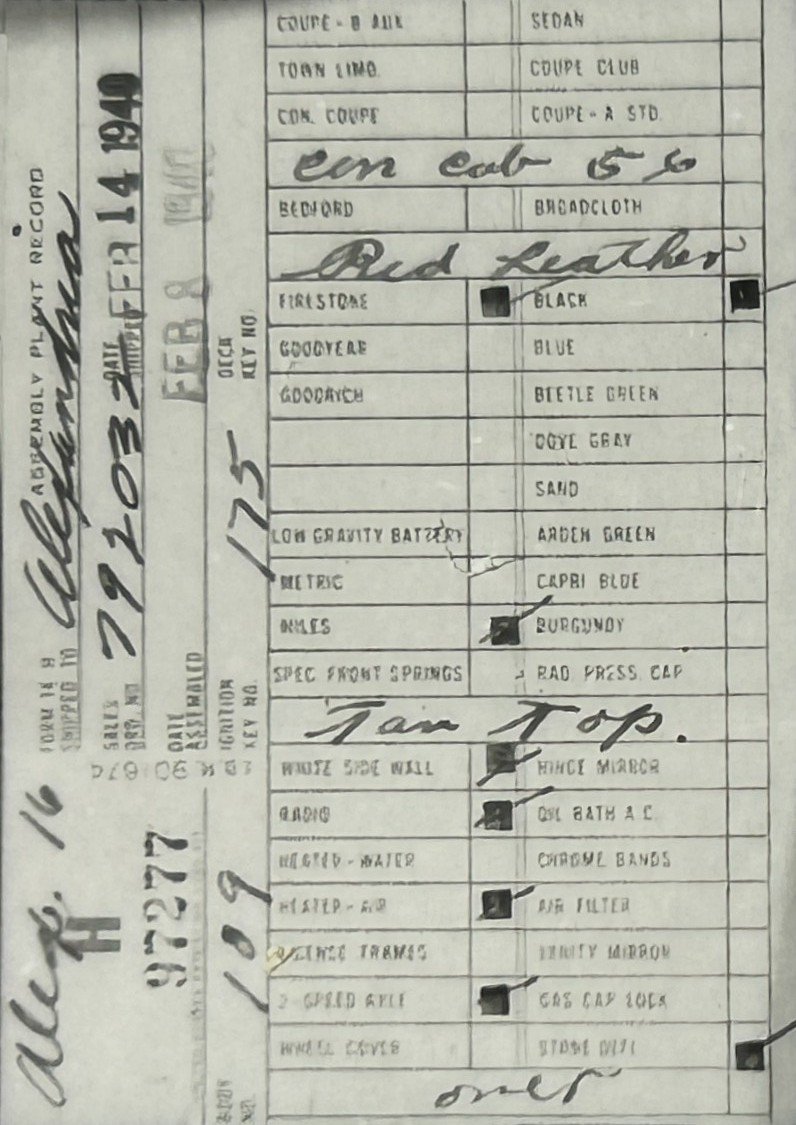 COUPE - B AUX
SEDAN
TOWN LIMO.
COUPE CLUB
CON. COUPE
COUPE - A STD.
Con Cab 56
BEDFORD
BROADCLOTH
Red Leather
FIRESTONE
BLACK
GOODYEAR
BLUE
GOODRICH
BEETLE GREEN
DOVE GRAY
SAND
LOW GRAVITY BATTERY
ARDEN GREEN
METRIC
CAPRI BLUE
MILES
BURGUNDY
SPEC FRONT SPRINGS
RAD PRESS. CAP
Tan Top.
WHITE SIDE WALL
HINGE MIRROR
RADIO
OIL BATH A.C.
HEATER - WATER
CHROME BANDS
HEATER - AIR
AIR FILTER
LICENSE FRAMES
VANITY MIRROR
2 - SPEED AXLE
GAS CAP LOCK
WHEEL COVER
STONE DEFL
over
ASSEMBLY PLANT RECORD
FORM 14 H
SHIPPED TO
Alexandria
SALES
ORD. NO.
792032
DATE
SHIPPED
FEB 14 1940
DATE
ASSEMBLED
FEB 8 1940
IGNITION
KEY NO.
175
DECK
KEY NO.
Alex. 16
H
97277
109